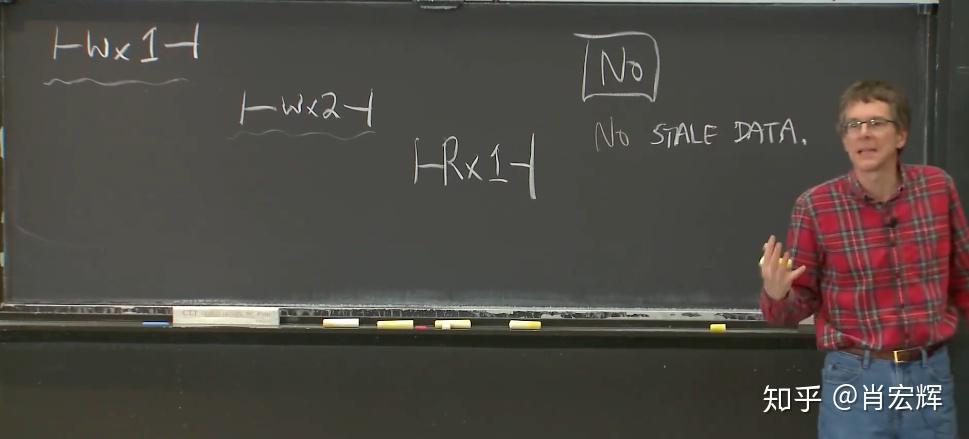 Wx1
Wx2
Rx1
No
No STALE DATA.
知乎 @肖宏辉